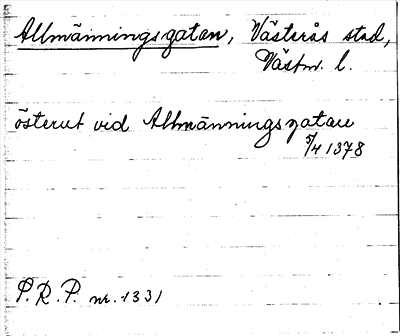 Allmänningsgatan, Västerås stad,
Västm. l.
österut vid Allmänningsgatan
5/4 1378
P.R.P. nr. 1331